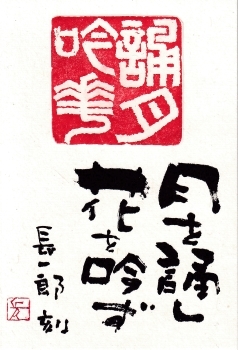 誦月
吟華
月を誦し
花を吟ず
長一郎刻